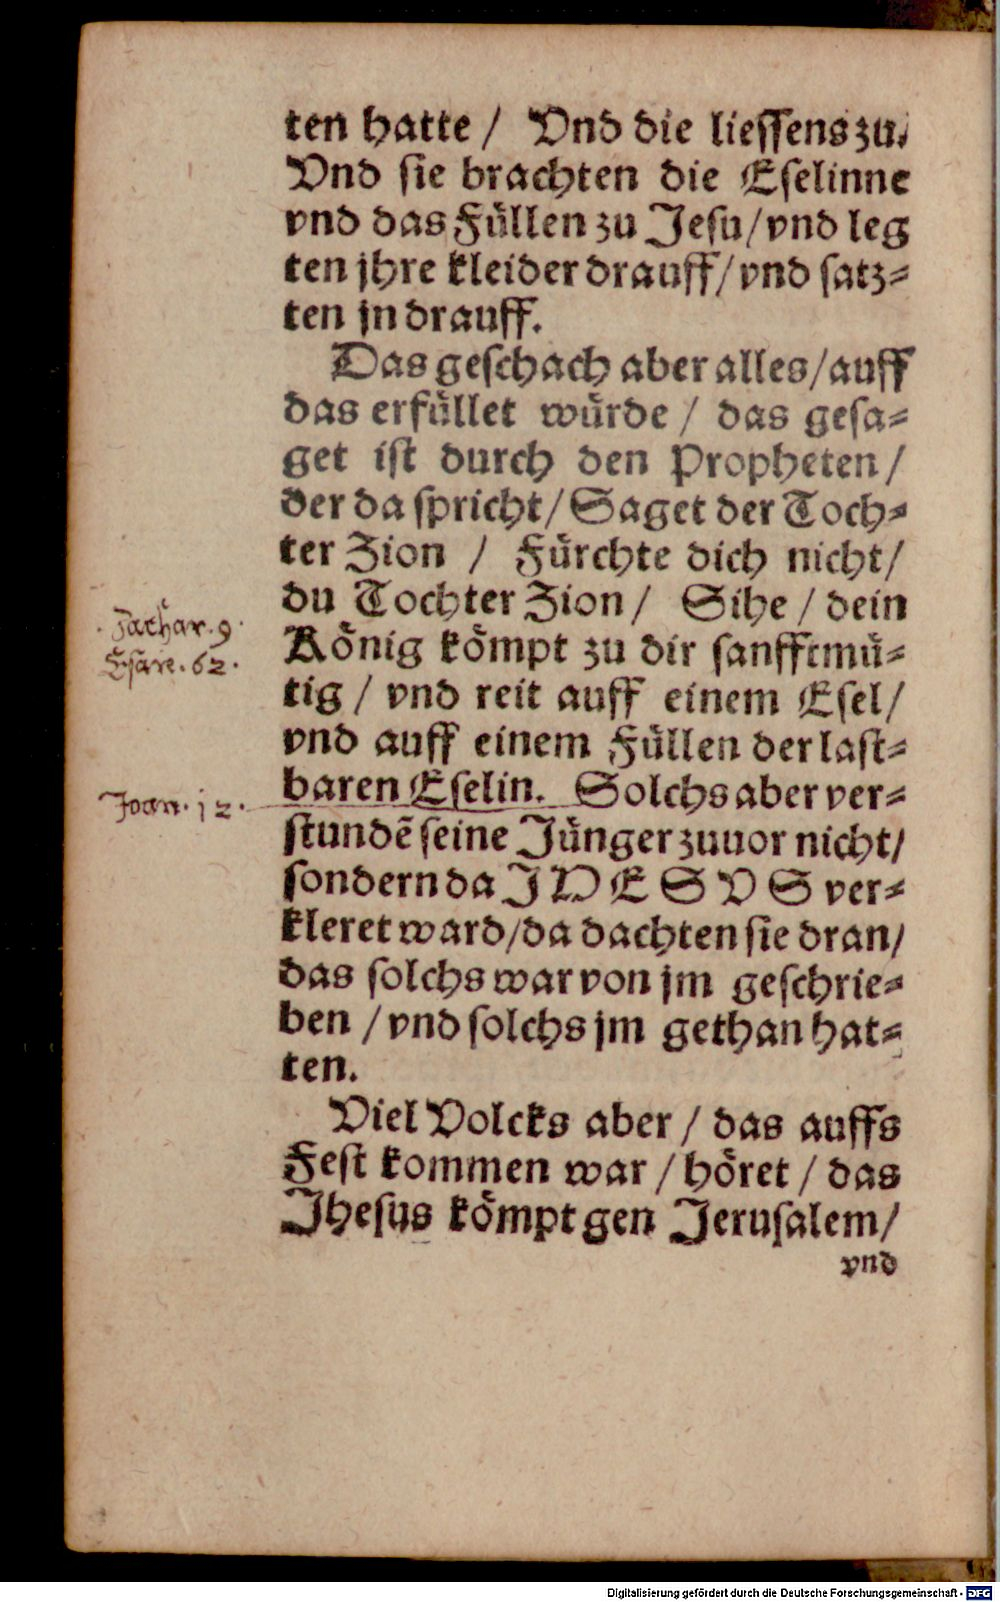 ten hatte / Vnd die liessens zu.
Vnd sie brachten die Eselinne
vnd das Füllen zu Jesu / vnd leg
ten jhre kleider drauff / vnd satz-
ten jn drauff.
Das geschach aber alles / auff
das erfüllet würde / das gesa-
get ist durch den Propheten /
der da spricht / Saget der Toch-
ter Zion / Fürchte dich nicht /
du Tochter Zion / Sihe / dein
König kömpt zu dir sanfftmü-
tig / vnd reit auff einem Esel /
vnd auff einem Füllen der last-
baren Eselin. Solchs aber ver-
stundẽ seine Jünger zuuor nicht /
sondern da JHESVS ver-
kleret ward / da dachten sie dran /
das solchs war von jm geschrie-
ben / vnd solchs jm gethan hat-
ten.
Viel Volcks aber / das auffs
Fest kommen war / höret / das
Jhesus kömpt gen Jerusalem /
vnd
Zachar. 9.
Esaie. 62.
Joan. 12.
Digitalisierung gefördert durch die Deutsche Forschungsgemeinschaft - DFG